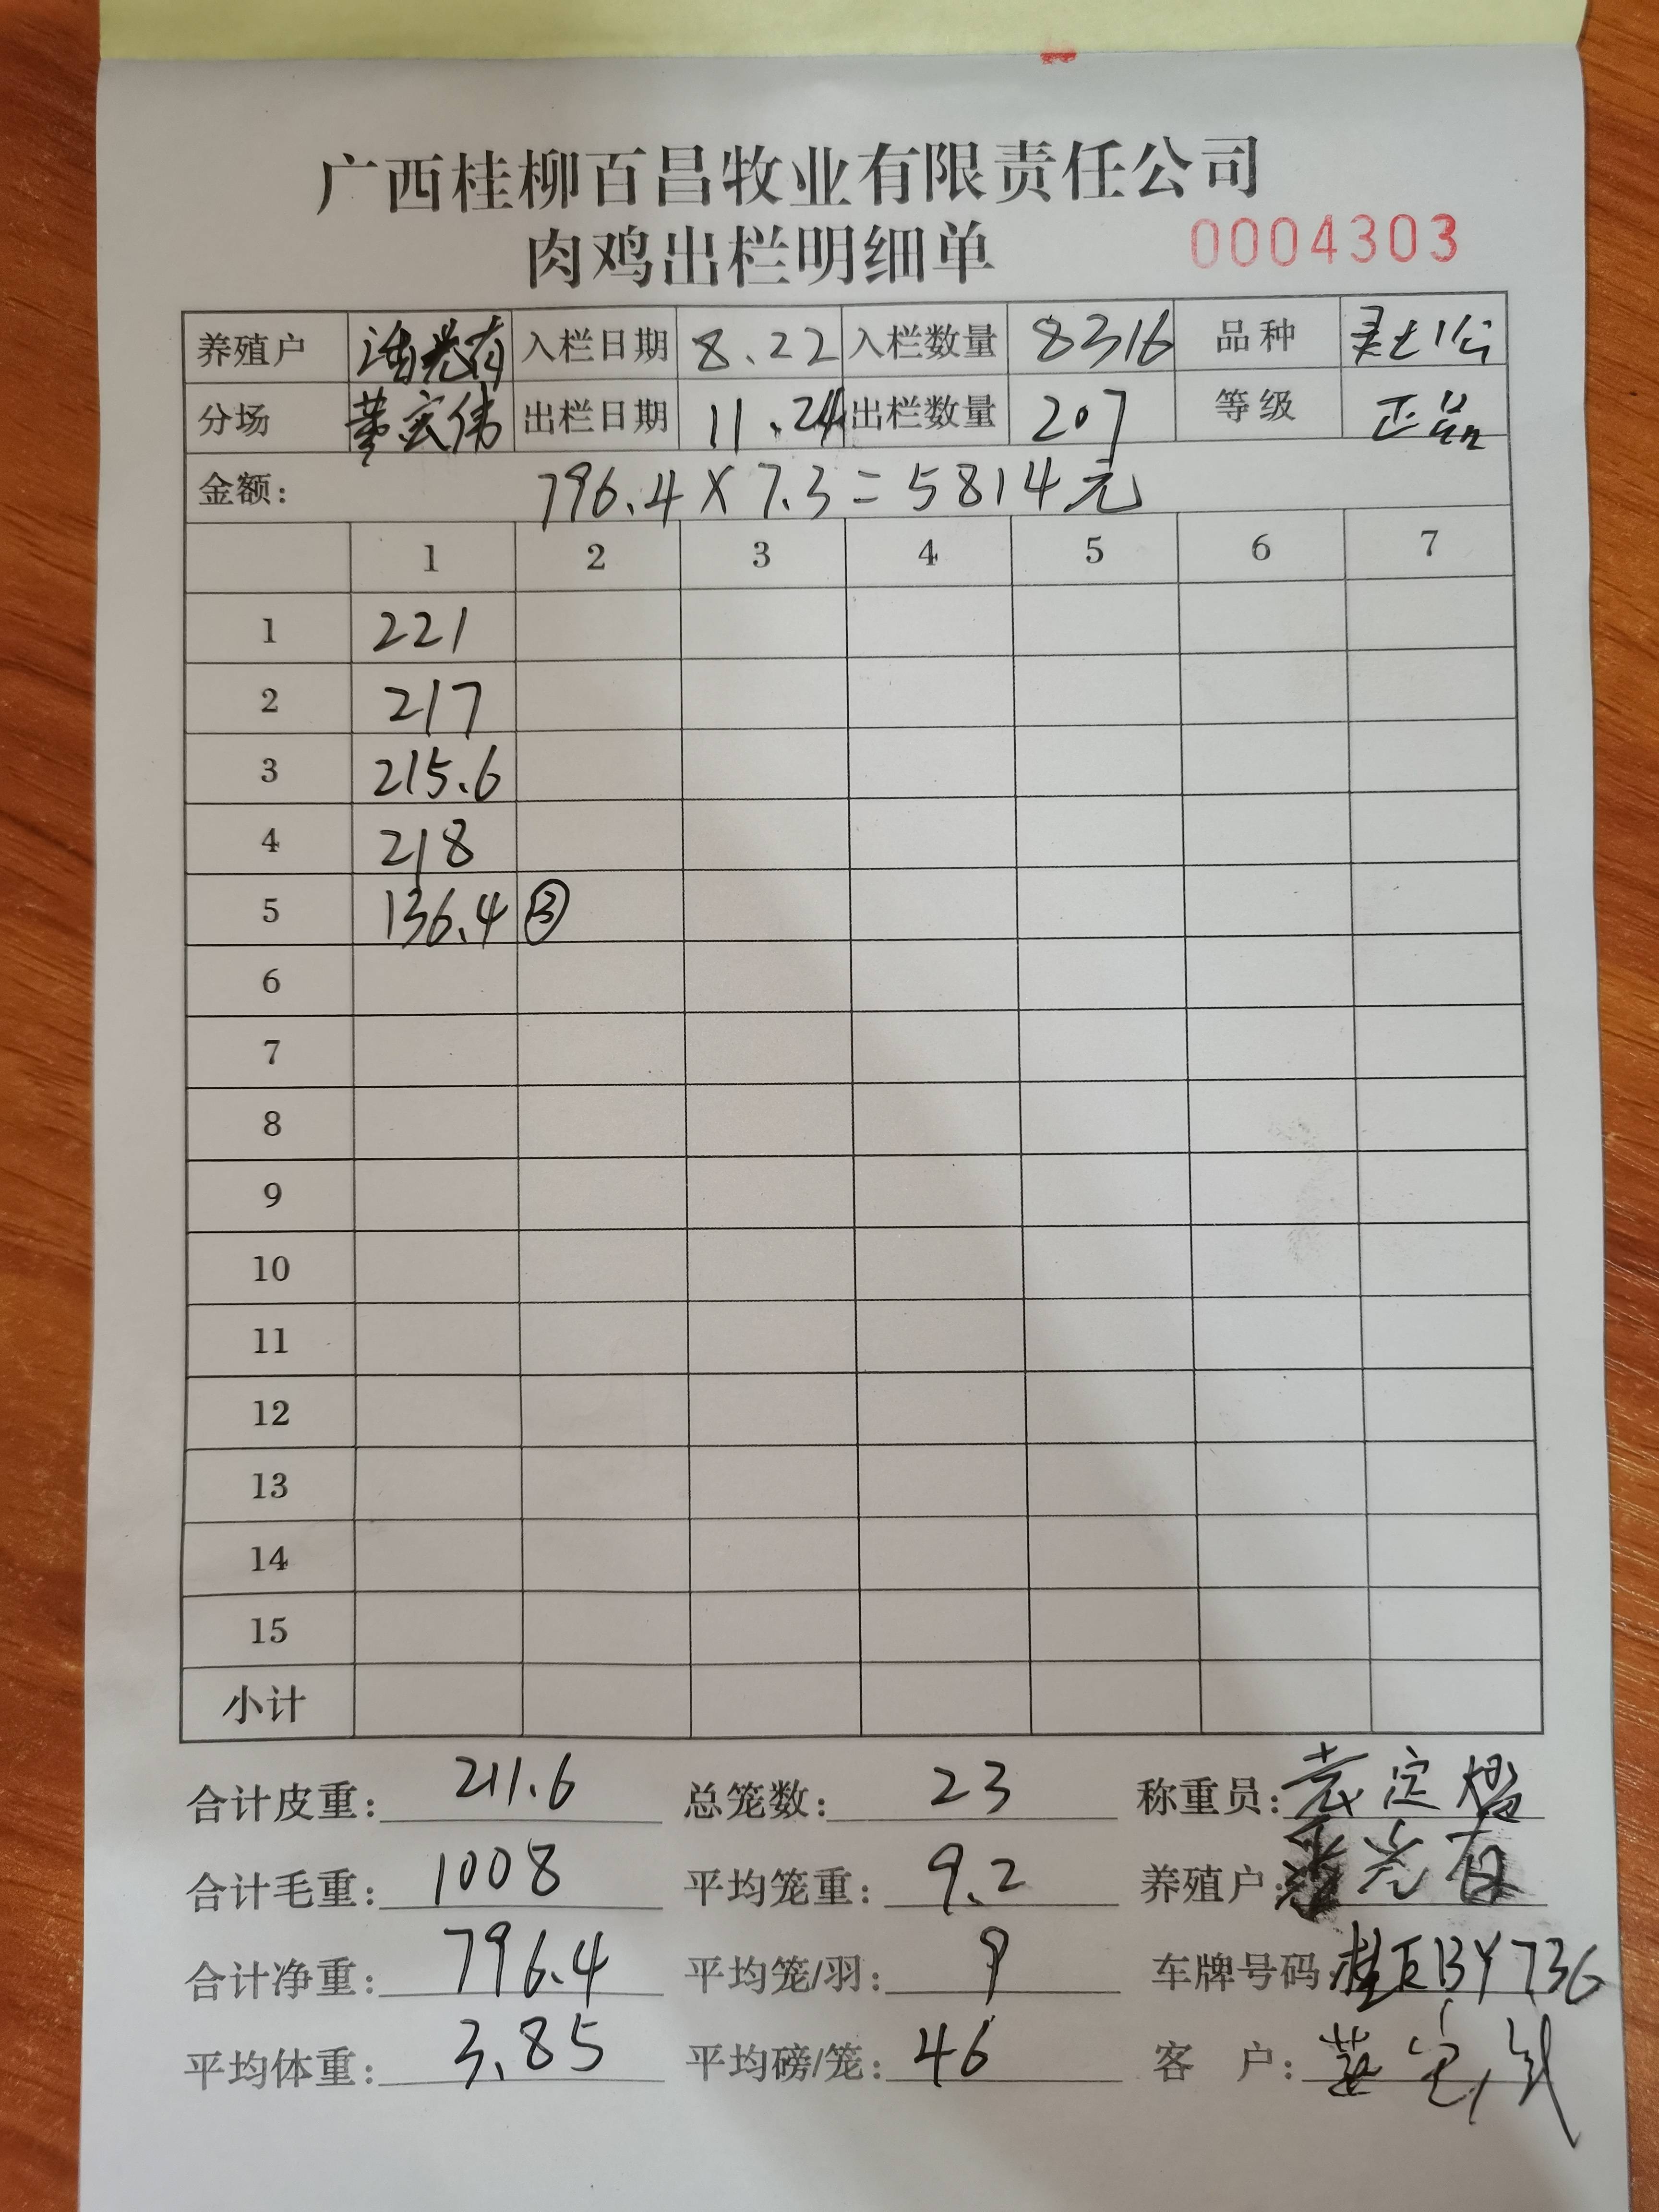 广西桂柳百昌牧业有限责任公司
肉鸡出栏明细单 0004303
养殖户 入栏日期 8.22 入栏数量 8316 品种
分场 出栏日期 11.24 出栏数量 207 等级 正品
金额: 796.4×7.3=5814元
1 2 3 4 5 6 7
1 221
2 217
3 215.6
4 218
5 136.4 ③
6
7
8
9
10
11
12
13
14
15
小计
合计皮重: 211.6 总笼数: 23 称重员:
合计毛重: 1008 平均笼重: 9.2 养殖户: 光有
合计净重: 796.4 平均笼/羽: 9 车牌号码:
平均体重: 3.85 平均磅/笼: 46 客 户: